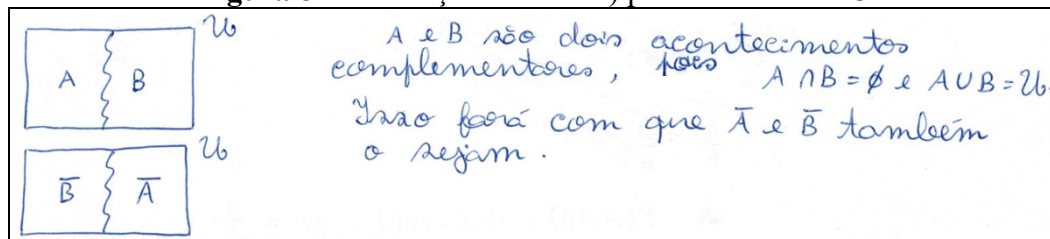 U
A B
A e B são dois acontecimentos
complementares, pois A ∩ B = ∅ e A ∪ B = U.
Isso fará com que Ā e B̄ também
o sejam.
U
B̄ Ā